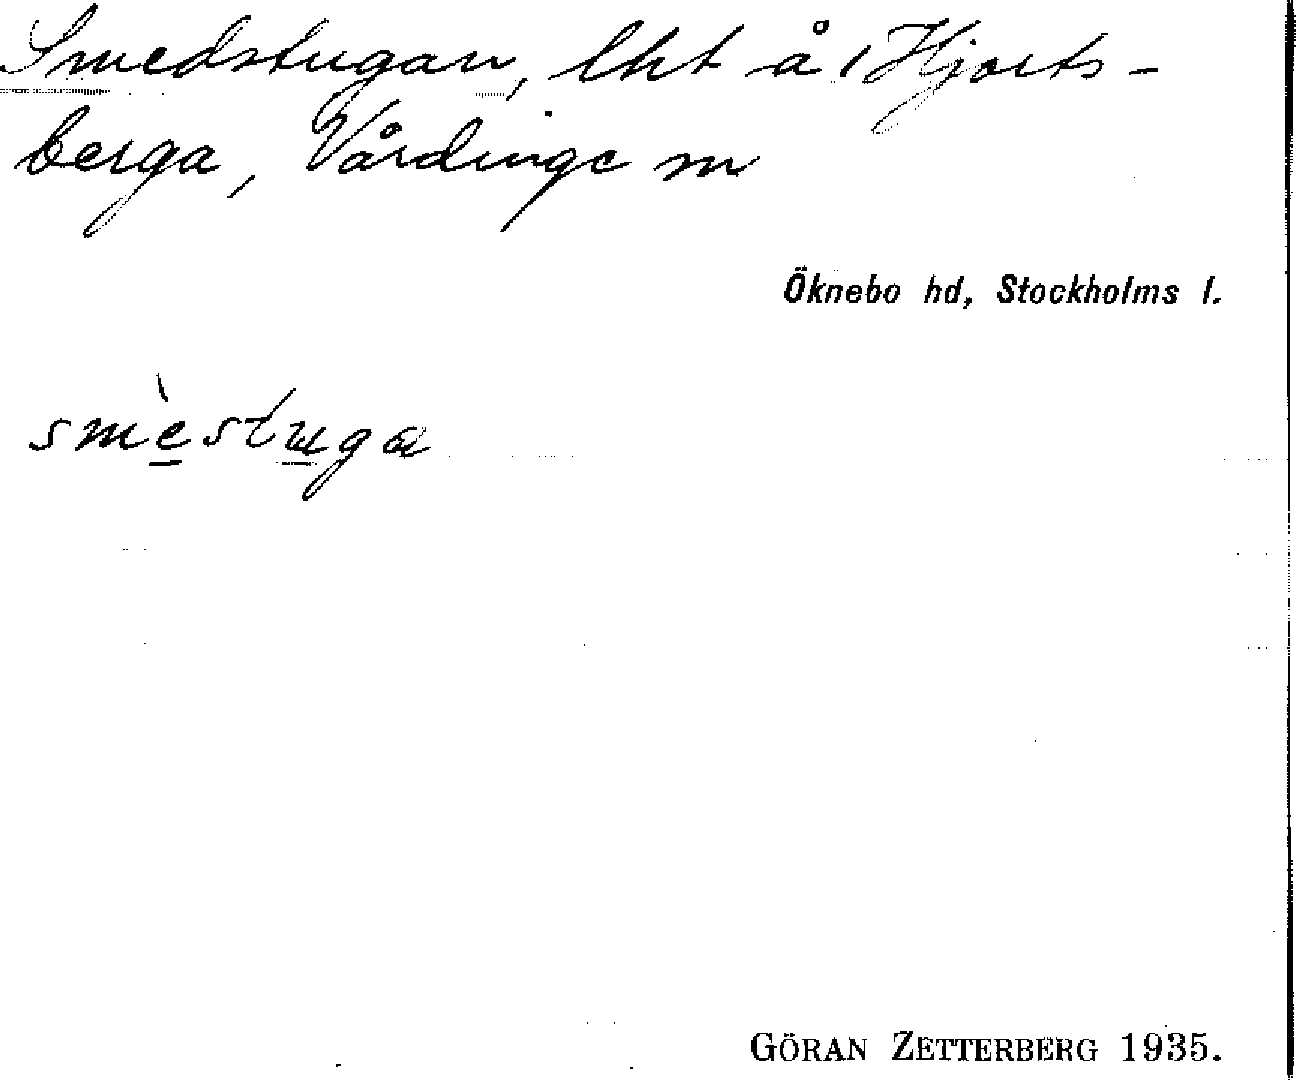 Smedstugan, lht å Hjorts-
berga, Vårdinge sn
Öknebo hd, Stockholms l.
smè̱stu̱ga
GÖRAN ZETTERBERG 1935.